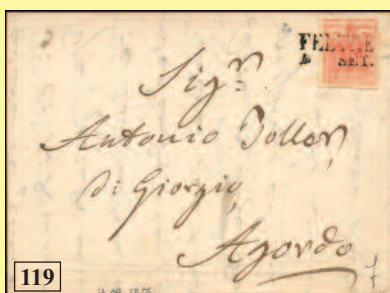 FELTRE
SET.
Sigr.
Antonio Toller
di Giorgio,
Agordo
119